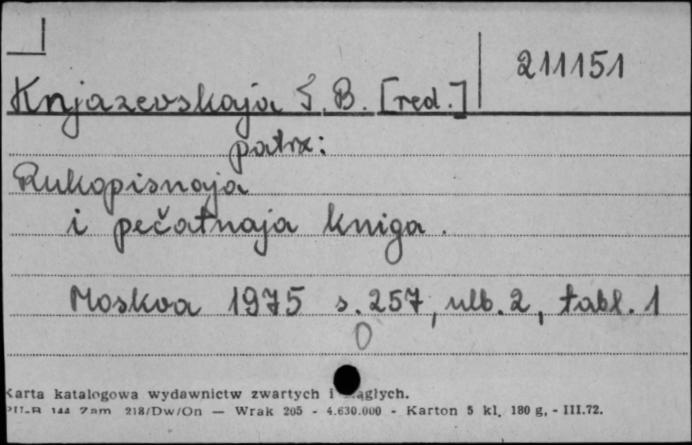 211151
Knjazevskaja T. B. [red.]
patrz:
Rukopisnaja
i pečatnaja kniga.
Moskva 1975 s. 257, nlb. 2, tabl. 1
0
Karta katalogowa wydawnictw zwartych i ciągłych.
218/Dw/On — Wrak 205 - 4.630.000 - Karton 5 kl. 180 g, - III.72.